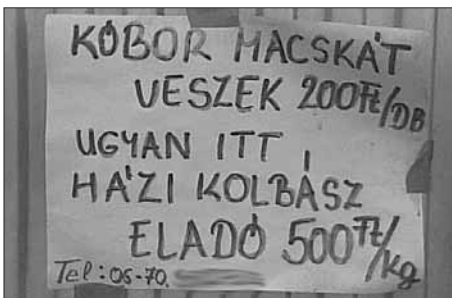 KÓBOR MACSKÁT
VESZEK 200Ft/DB
UGYAN ITT
HÁZI KOLBÁSZ
ELADÓ 500Ft/kg
Tel: 06-70.